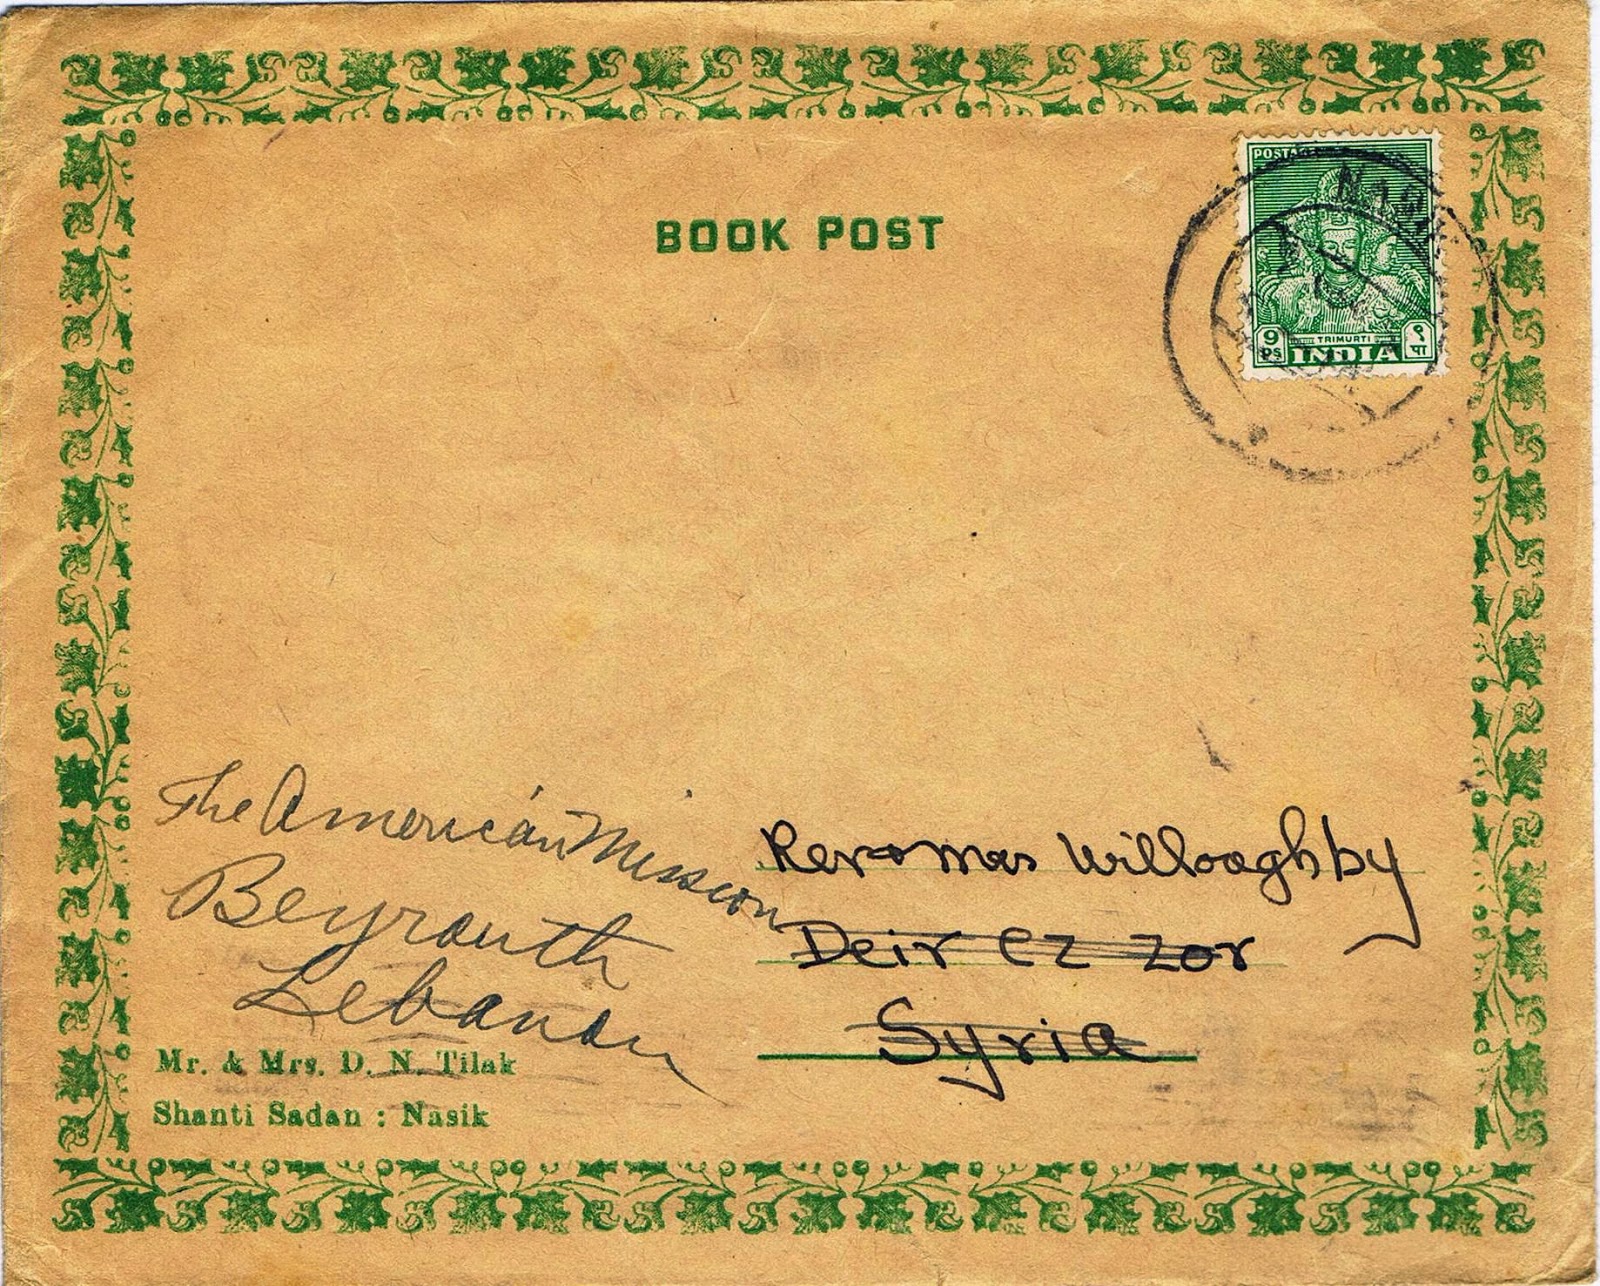 BOOK POST
POSTAGE
NASIK
9 ९
PS पा
TRIMURTI
INDIA
The American Mission
Beyrouth
Lebanon
Rev & Mrs Willoaghby
Deir Ez Zor
Syria
Mr. & Mrs. D. N. Tilak
Shanti Sadan : Nasik